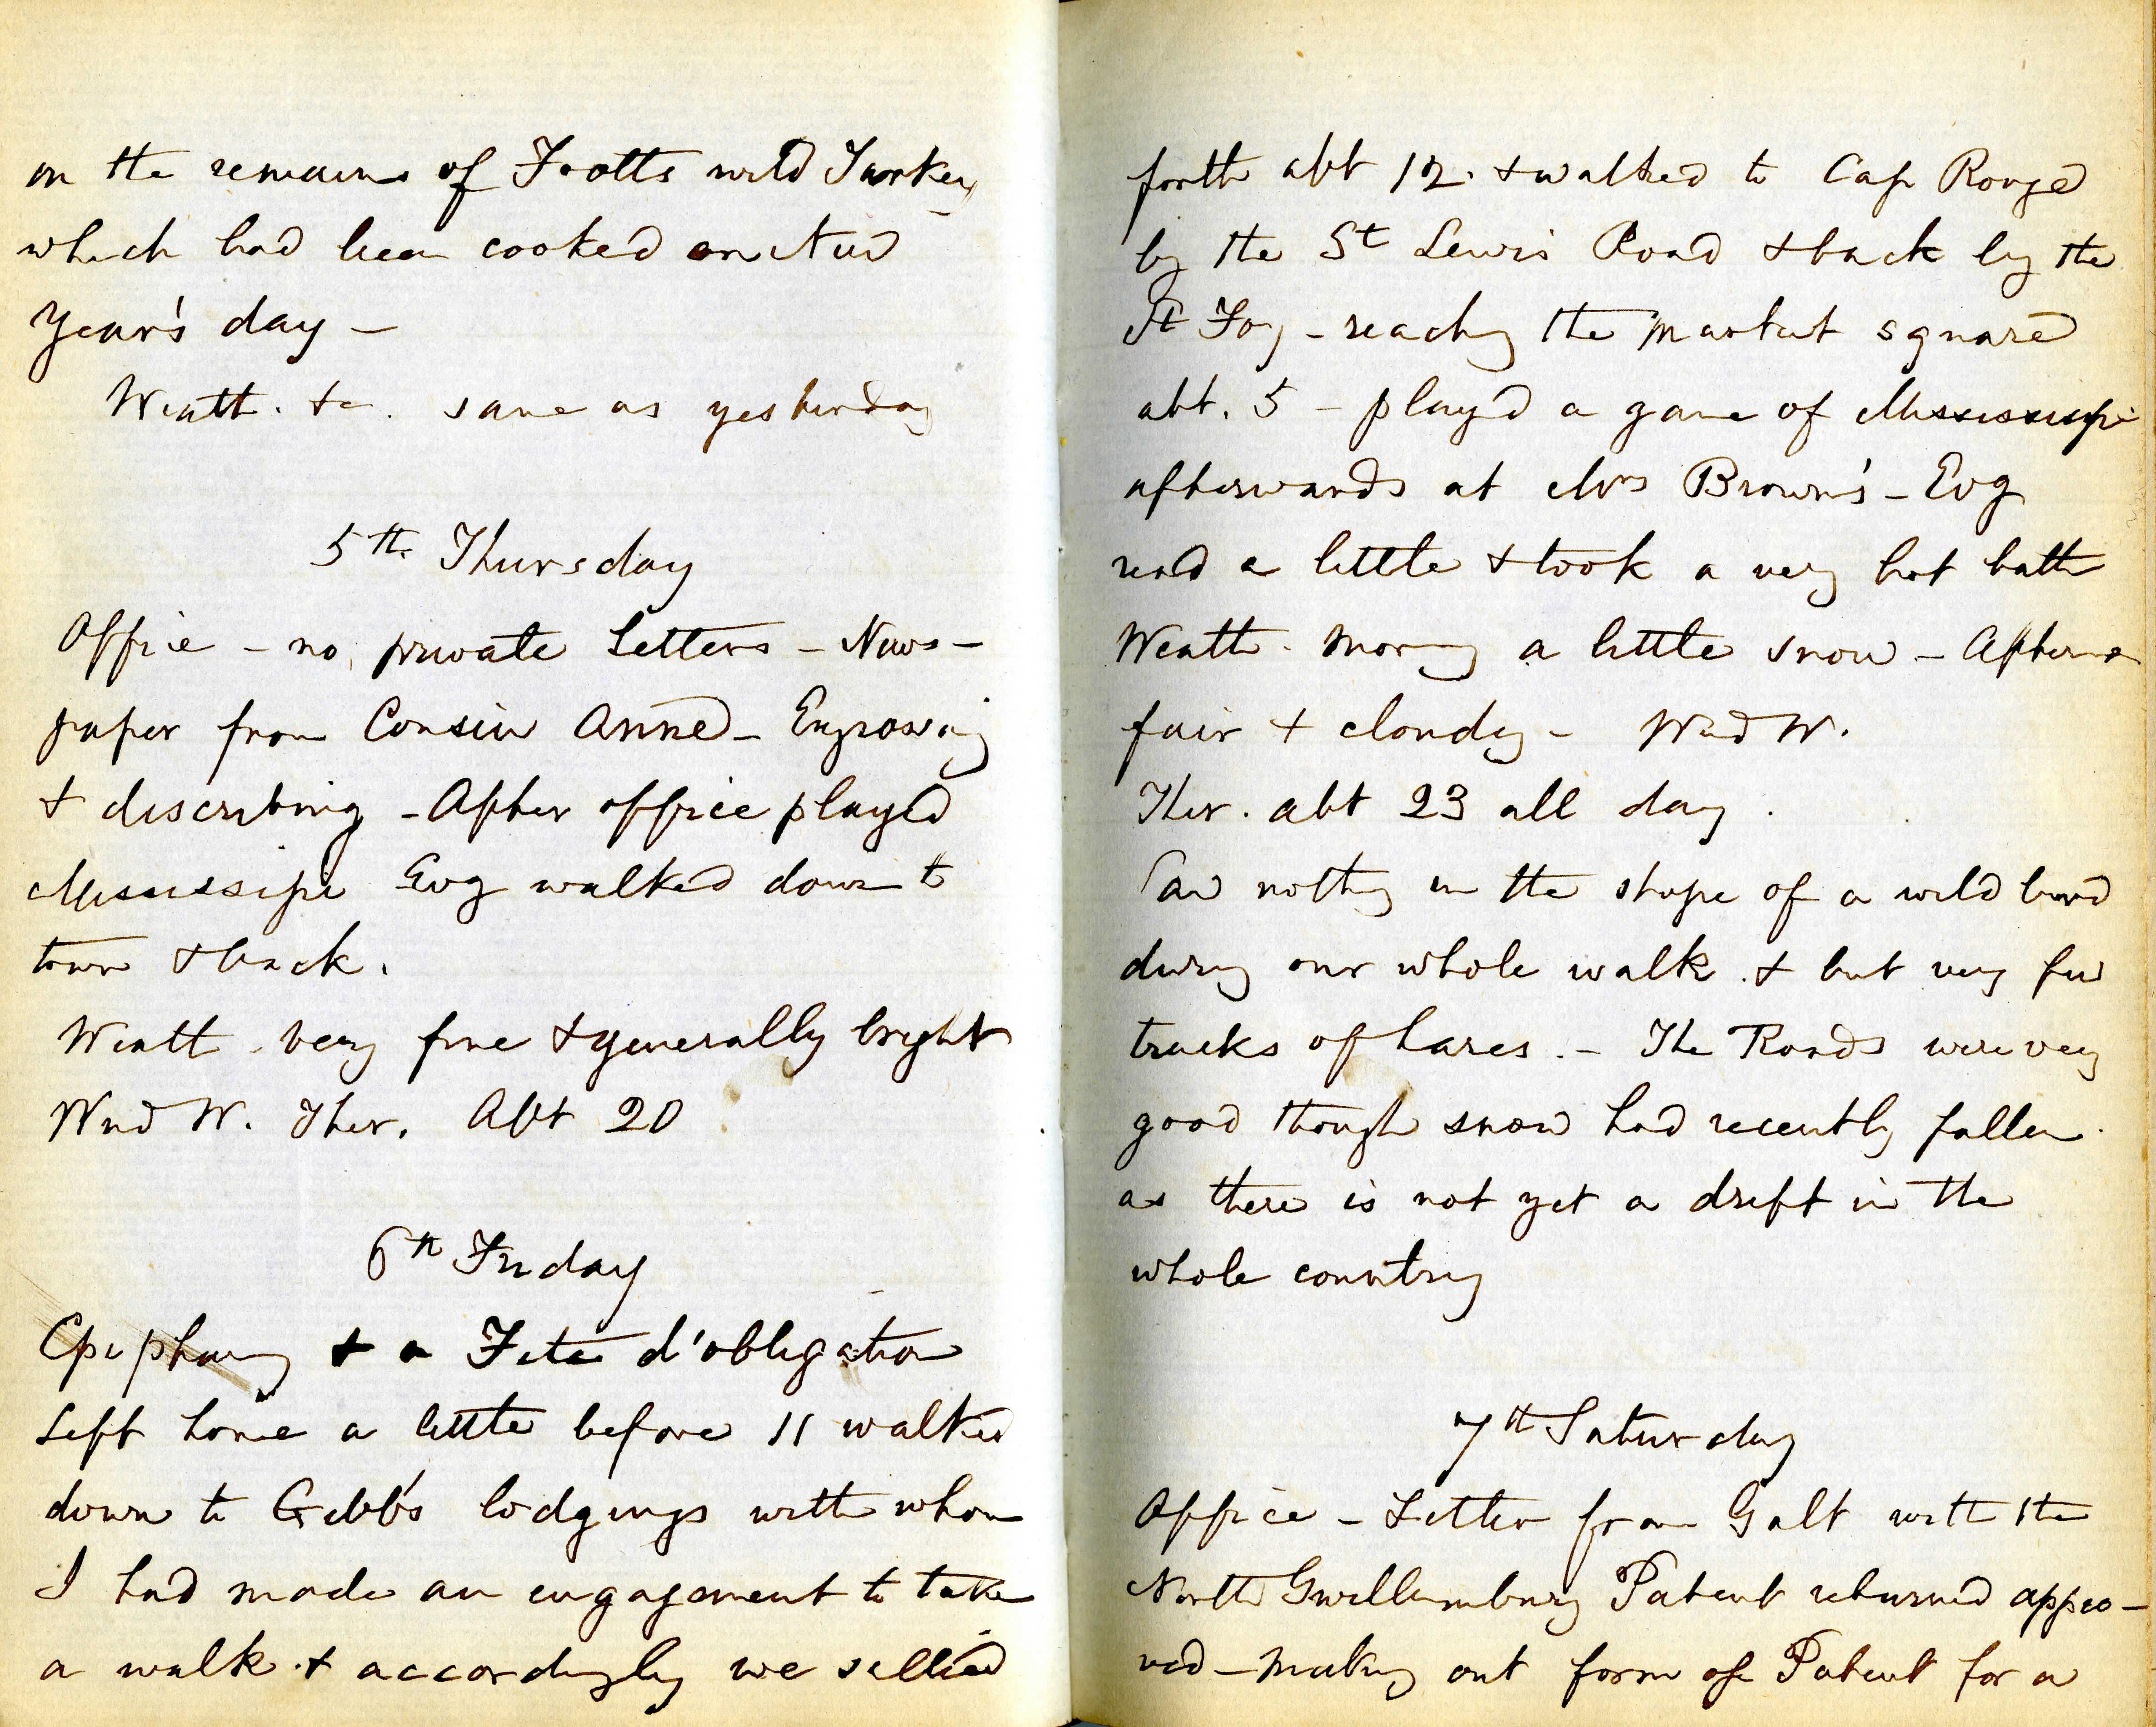 on the remains of Trotts wild Turkey
which had been cooked on New
Year's day –
Weath. &c. same as yesterday
5th Thursday
Office – no private Letters – News-
paper from Cousin Anne – Engrossing
& describing – After office played
Mississipi Evg walked down to
town & back.
Weath. very fine & generally bright
Wind W. Ther. Abt 20
6th Friday
Epiphany & a Fete d'obligation
Left home a little before 11 walked
down to Gibb's lodgings with whom
I had made an engagement to take
a walk & accordingly we sallied
forth abt 12. & walked to Cap Rouge
by the St Lewis Road & back by the
St Foy – reachg the Market square
abt. 5 – play'd a game of Mississippi
afterwards at Mrs Brown's – Evg
read a little & took a very hot bath
Weath. Morng a little snow – Afternn
fair & cloudy – Wind W.
Ther. abt 23 all day.
Saw nothg in the shape of a wild bird
during our whole walk & but very few
tracks of hares. – The Roads were very
good though snow had recently fallen.
as there is not yet a drift in the
whole country
7th Saturday
Office – Letter from Galt with the
North Gwillimbury Patent returned appro-
ved – Making out form of Patent for a